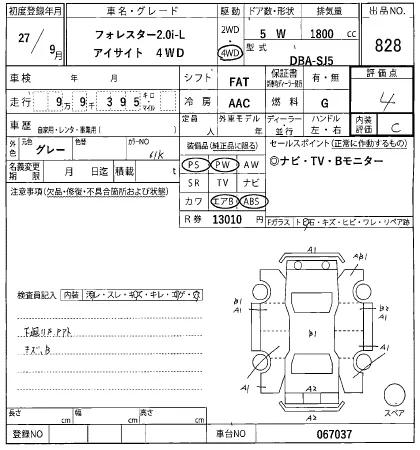 初度登録年月 車名・グレード 駆動 ドア数・形状 排気量 出品NO.
27/9月 フォレスター2.0i-L アイサイト 4WD 2WD・4WD 5 W 1800 cc 828
型式 DBA-SJ5
車検 年 月 シフト FAT 保証書 有・無 評価点
走行 9万9千395 キロ・マイル 冷房 AAC 燃料 G 4
車歴 自家用・レンタ・事業用( ) 定員 人 外車モデル 年 ディーラー・並行 ハンドル 左・右 内装評価 C
外色 元色 グレー 色替 カラーNO 61K 装備品(純正品に限る) セールスポイント(正常に動作するもの)
名義変更期限 月 日迄 積載 t PS PW AW ◎ナビ・TV・Bモニター
注意事項(欠品・修復・不具合箇所および状態) SR TV ナビ
カワ エアB ABS
R券 13010 円 Fガラス トビ石・キズ・ヒビ・ワレ・リペア跡
A1
A1 AB1
B1 B1
A1 A1
検査員記入 内装
キズ、B
A1 A2 A1
A2
スペア
長さ cm 幅 cm 高さ cm
登録NO 車台NO 067037